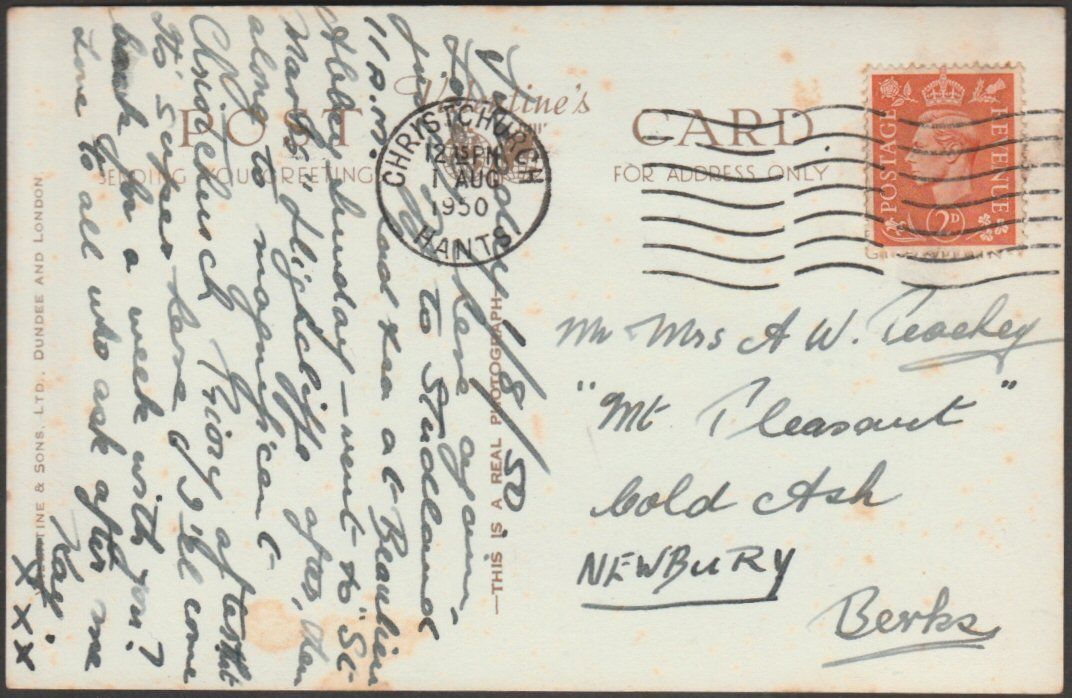 Valentine's
POST CARD
SENDING YOU GREETING
FOR ADDRESS ONLY
CHRISTCHURCH
12 15 PM
1 AUG
1950
HANTS
POSTAGE
REVENUE
2D
Tuesday 1/8/50.
here again,
to Studland
11 p.m. had tea at Beaulieu
Abbey Sunday — went to "St
Marks" Highcliffe after, then
along to magnificent
Christchurch Priory after that
It's super here & I'll come
back for a week with you?
Love to all who ask after me
Kay.
X X X
VALENTINE & SONS, LTD., DUNDEE AND LONDON.
—THIS IS A REAL PHOTOGRAPH.
Mr Mrs A W. Peachey
"Mt Pleasant"
Cold Ash
NEWBURY
Berks